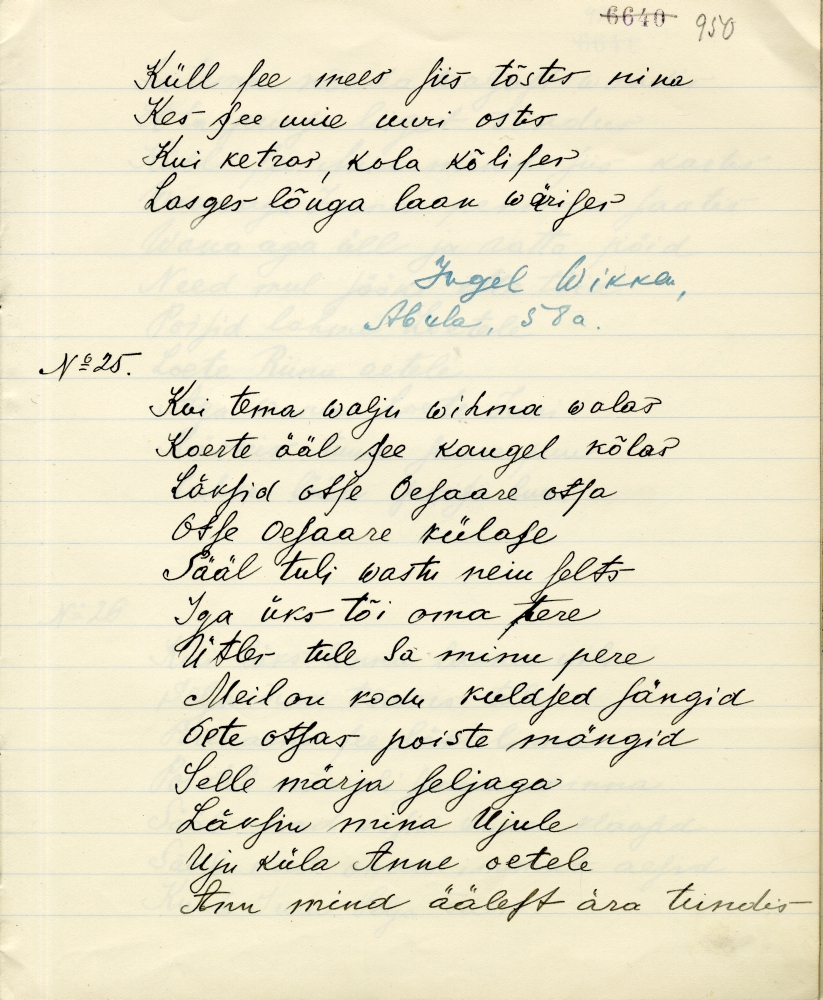 6640 950
Küll see mees siis tõstis nina
Kes see uue uuri ostis
Kui ketras, kola kõlises
Lasges lõnga laan wärises
Ingel Wikka,
Abula, 58a.
No 25.
Kui tema walju wihma walas
Koerte ääl see kaugel kõlas
Läksid otse Oesaare otsa
Otse Oesaare külase
Sääl tuli wastu neiu selts
Iga üks tõi oma tere
Ütles tule sa minu pere
Meil on kodu kuldsed sängid
Oete otsas poiste mängid
Selle märja seljaga
Läksin mina Ujule
Uju küla Anne oetele
Ann mind äälest ära tundis